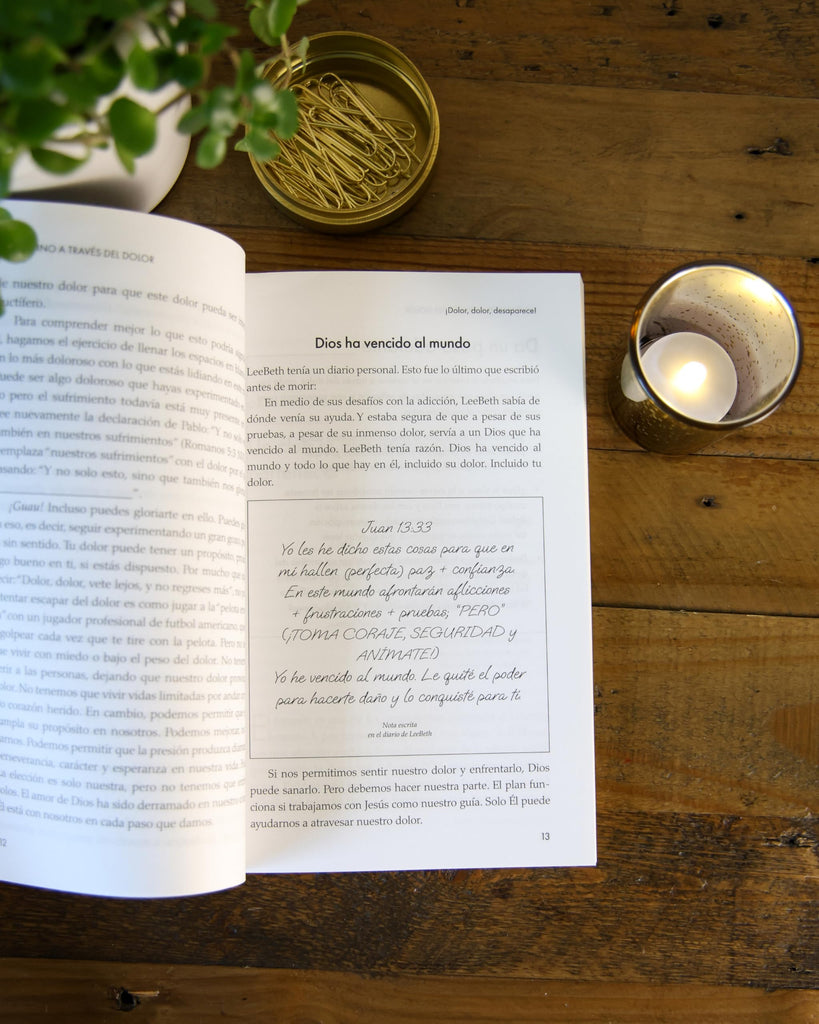 NO A TRAVÉS DEL DOLOR
nuestro dolor para que este dolor pueda ser
Para comprender mejor lo que esto podría
hagamos el ejercicio de llenar los espacios en
lo más doloroso con lo que estás lidiando en
ser algo doloroso que hayas experimentado
pero el sufrimiento todavía está muy presente
nuevamente la declaración de Pablo: “Y no
en nuestros sufrimientos” (Romanos 5:3
“nuestros sufrimientos” con el dolor
“Y no solo esto, sino que también nos
”.
¡Guau! Incluso puedes gloriarte en ello. Puedes
eso, es decir, seguir experimentando un gran
sin sentido. Tu dolor puede tener un propósito,
bueno en ti, si estás dispuesto. Por mucho que
“Dolor, dolor, vete lejos, y no regreses más”,
escapar del dolor es como jugar a la “pelota
con un jugador profesional de futbol americano,
golpear cada vez que te tire con la pelota. Pero no
vivir con miedo o bajo el peso del dolor. No
a las personas, dejando que nuestro dolor
No tenemos que vivir vidas limitadas por andar
corazón herido. En cambio, podemos permitir que
su propósito en nosotros. Podemos mejorar,
Podemos permitir que la presión produzca
perseverancia, carácter y esperanza en nuestra vida.
elección es solo nuestra, pero no tenemos que
El amor de Dios ha sido derramado en nuestro
Él está con nosotros en cada paso que damos.
12
¡Dolor, dolor, desaparece!
Dios ha vencido al mundo
LeeBeth tenía un diario personal. Esto fue lo último que escribió
antes de morir:
En medio de sus desafíos con la adicción, LeeBeth sabía de
dónde venía su ayuda. Y estaba segura de que a pesar de sus
pruebas, a pesar de su inmenso dolor, servía a un Dios que ha
vencido al mundo. LeeBeth tenía razón. Dios ha vencido al
mundo y todo lo que hay en él, incluido su dolor. Incluido tu
dolor.
Juan 13:33
Yo les he dicho estas cosas para que en
mí hallen (perfecta) paz + confianza.
En este mundo afrontarán aflicciones
+ frustraciones + pruebas; “PERO”
(¡TOMA CORAJE, SEGURIDAD y
ANÍMATE!)
Yo he vencido al mundo. Le quité el poder
para hacerte daño y lo conquisté para ti.
Nota escrita
en el diario de LeeBeth
Si nos permitimos sentir nuestro dolor y enfrentarlo, Dios
puede sanarlo. Pero debemos hacer nuestra parte. El plan fun-
ciona si trabajamos con Jesús como nuestro guía. Solo Él puede
ayudarnos a atravesar nuestro dolor.
13